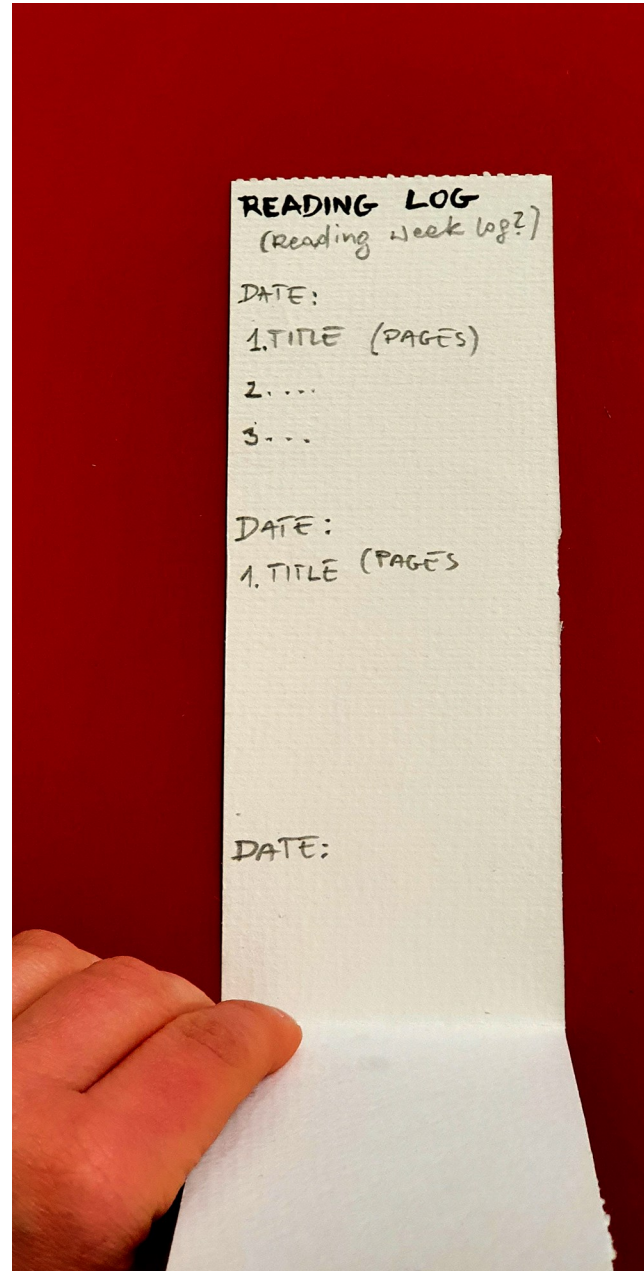 READING LOG
(Reading Week Log?)
DATE:
1. TITLE (PAGES)
2. ....
3. ...
DATE:
1. TITLE (PAGES
DATE: